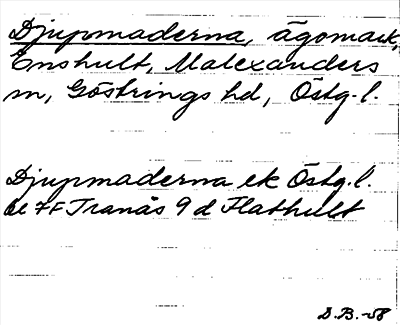 Djupmaderna, ägomark,
Enshult, Malexanders
sn, Göstrings hd, Östg.l.
Djupmaderna ek Östg.l.
bl 7F Tranås 9 d Flathult
D.B.-58